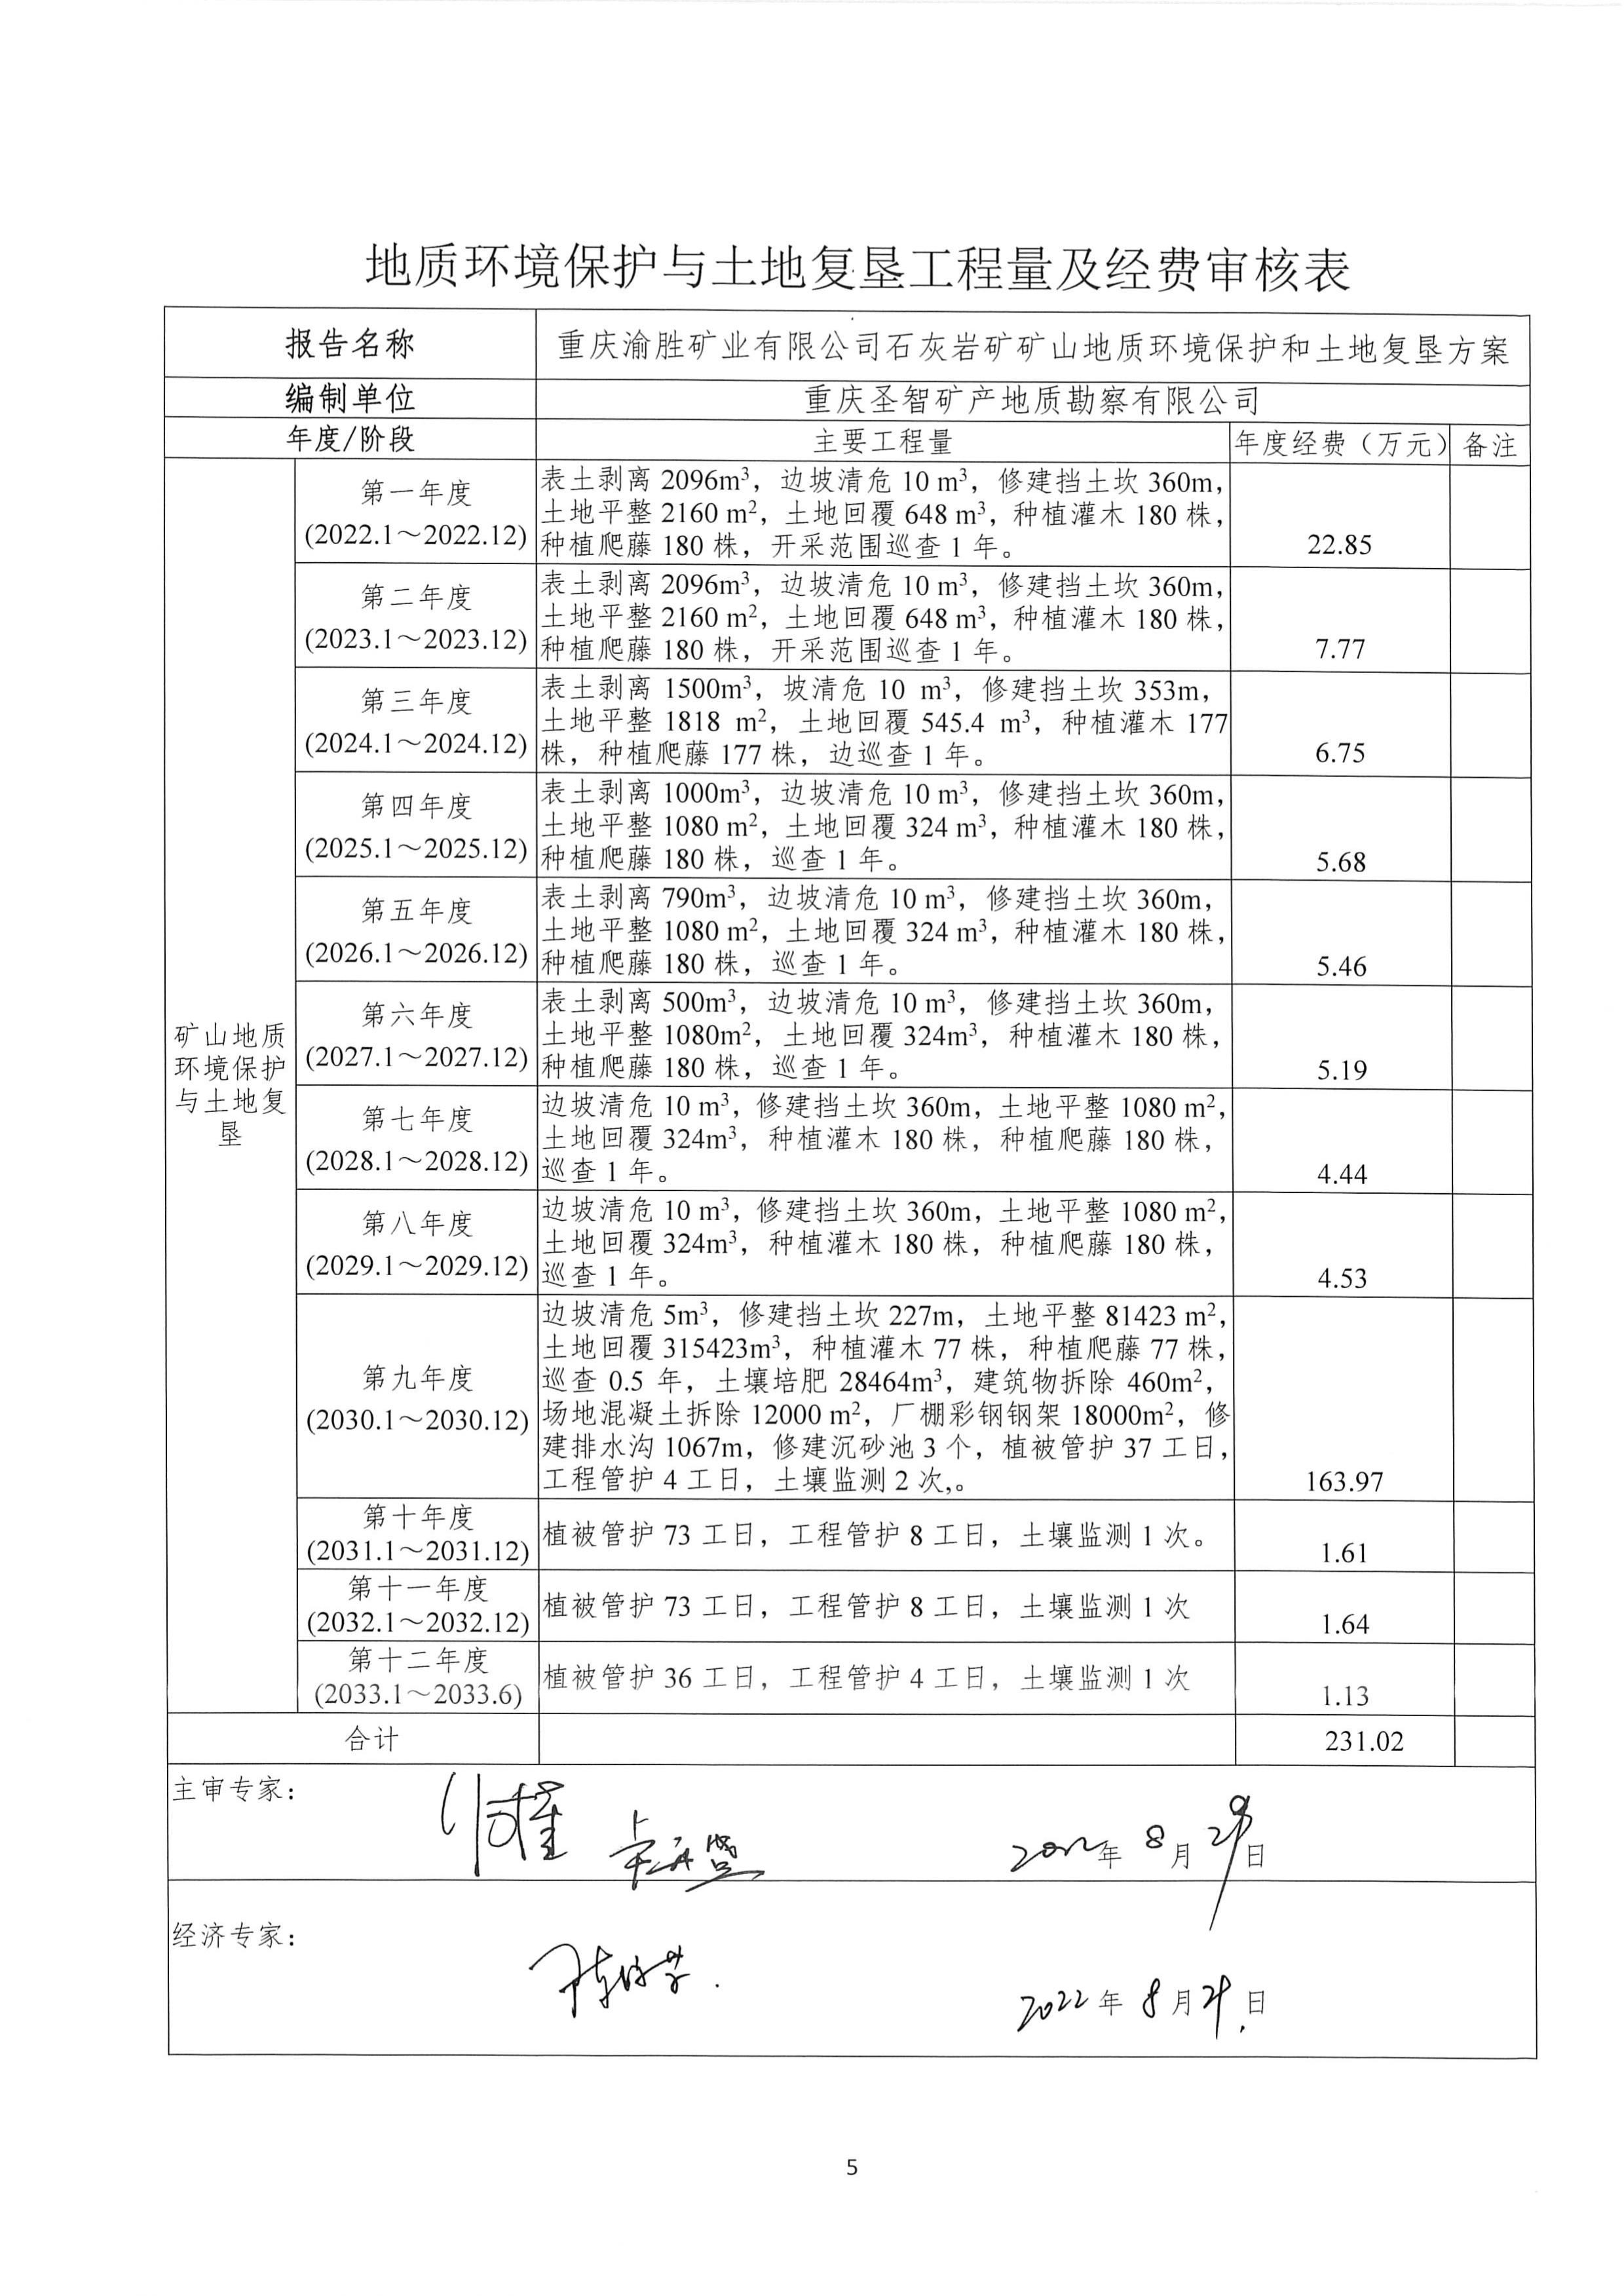 地质环境保护与土地复垦工程量及经费审核表
报告名称
重庆渝胜矿业有限公司石灰岩矿矿山地质环境保护和土地复垦方案
编制单位
重庆圣智矿产地质勘察有限公司
年度/阶段
主要工程量
年度经费（万元）
备注
矿山地质
环境保护
与土地复
垦
第一年度
(2022.1～2022.12)
表土剥离 2096m³，边坡清危 10 m³，修建挡土坎 360m，
土地平整 2160 m²，土地回覆 648 m³，种植灌木 180 株，
种植爬藤 180 株，开采范围巡查 1 年。
22.85
第二年度
(2023.1～2023.12)
表土剥离 2096m³，边坡清危 10 m³，修建挡土坎 360m，
土地平整 2160 m²，土地回覆 648 m³，种植灌木 180 株，
种植爬藤 180 株，开采范围巡查 1 年。
7.77
第三年度
(2024.1～2024.12)
表土剥离 1500m³，坡清危 10 m³，修建挡土坎 353m，
土地平整 1818 m²，土地回覆 545.4 m³，种植灌木 177
株，种植爬藤 177 株，边巡查 1 年。
6.75
第四年度
(2025.1～2025.12)
表土剥离 1000m³，边坡清危 10 m³，修建挡土坎 360m，
土地平整 1080 m²，土地回覆 324 m³，种植灌木 180 株，
种植爬藤 180 株，巡查 1 年。
5.68
第五年度
(2026.1～2026.12)
表土剥离 790m³，边坡清危 10 m³，修建挡土坎 360m，
土地平整 1080 m²，土地回覆 324 m³，种植灌木 180 株，
种植爬藤 180 株，巡查 1 年。
5.46
第六年度
(2027.1～2027.12)
表土剥离 500m³，边坡清危 10 m³，修建挡土坎 360m，
土地平整 1080m²，土地回覆 324m³，种植灌木 180 株，
种植爬藤 180 株，巡查 1 年。
5.19
第七年度
(2028.1～2028.12)
边坡清危 10 m³，修建挡土坎 360m，土地平整 1080 m²，
土地回覆 324m³，种植灌木 180 株，种植爬藤 180 株，
巡查 1 年。
4.44
第八年度
(2029.1～2029.12)
边坡清危 10 m³，修建挡土坎 360m，土地平整 1080 m²，
土地回覆 324m³，种植灌木 180 株，种植爬藤 180 株，
巡查 1 年。
4.53
第九年度
(2030.1～2030.12)
边坡清危 5m³，修建挡土坎 227m，土地平整 81423 m²，
土地回覆 315423m³，种植灌木 77 株，种植爬藤 77 株，
巡查 0.5 年，土壤培肥 28464m³，建筑物拆除 460m²，
场地混凝土拆除 12000 m²，厂棚彩钢钢架 18000m²，修
建排水沟 1067m，修建沉砂池 3 个，植被管护 37 工日，
工程管护 4 工日，土壤监测 2 次,。
163.97
第十年度
(2031.1～2031.12)
植被管护 73 工日，工程管护 8 工日，土壤监测 1 次。
1.61
第十一年度
(2032.1～2032.12)
植被管护 73 工日，工程管护 8 工日，土壤监测 1 次
1.64
第十二年度
(2033.1～2033.6)
植被管护 36 工日，工程管护 4 工日，土壤监测 1 次
1.13
合计
231.02
主审专家：
2022年 8月 29日
经济专家：
2022年 8月 29日
5